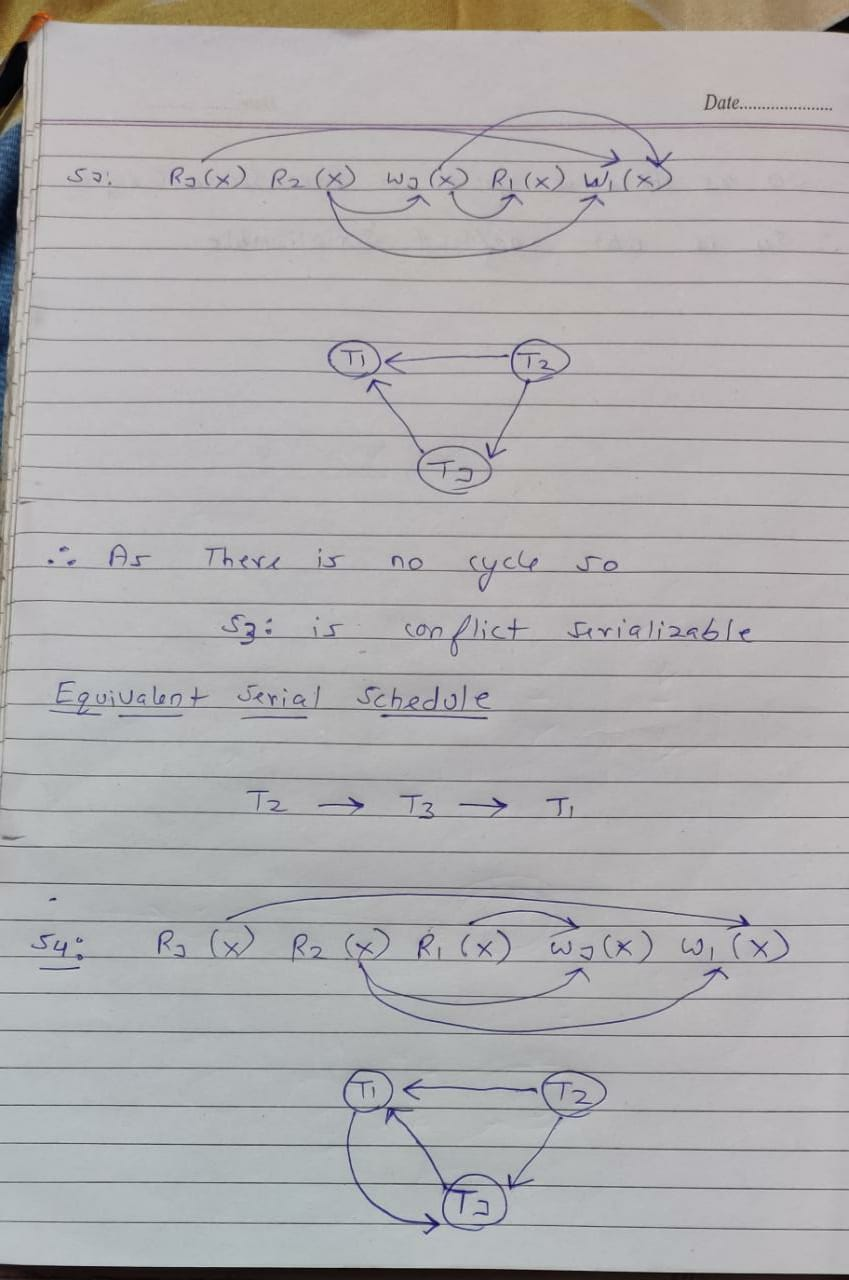 Date.....................
S3: R3(x) R2(x) W3(x) R1(x) W1(x)
T1 T2
T3
∴ As There is no cycle so
S3: is conflict serializable
Equivalent Serial Schedule
T2 → T3 → T1
S4: R3(x) R2(x) R1(x) W3(x) W1(x)
T1 T2
T3